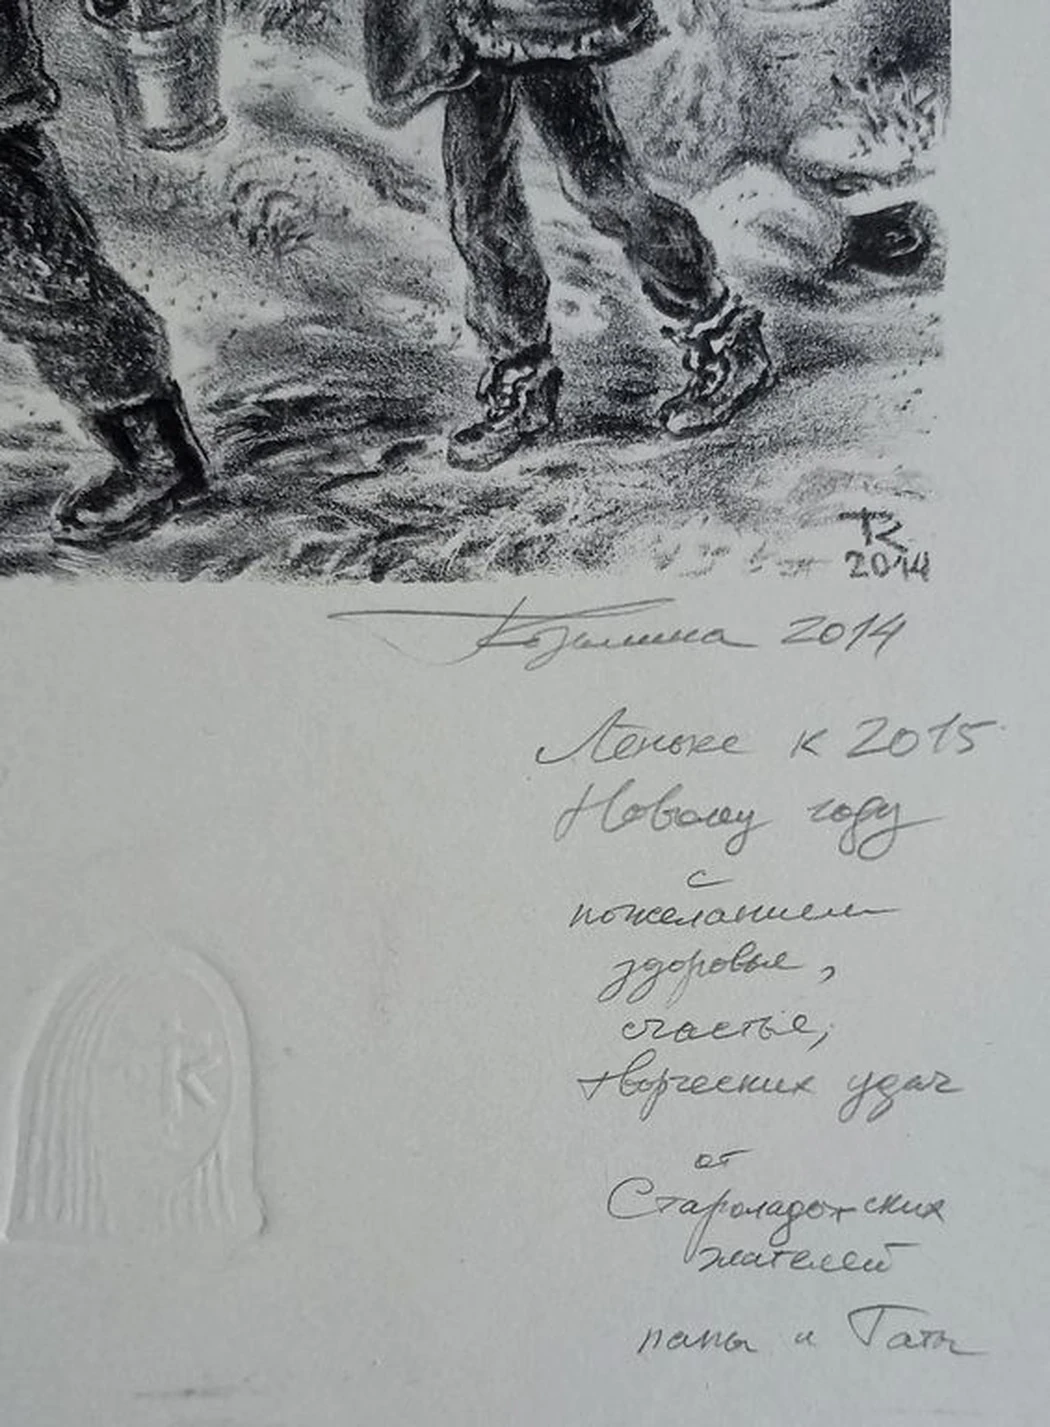 TK
2014
2014
Леньке к 2015
Новому году
с
пожеланием
здоровье,
счастье,
творческих удач
от
Староладожских
жителей
папы и Таты
K